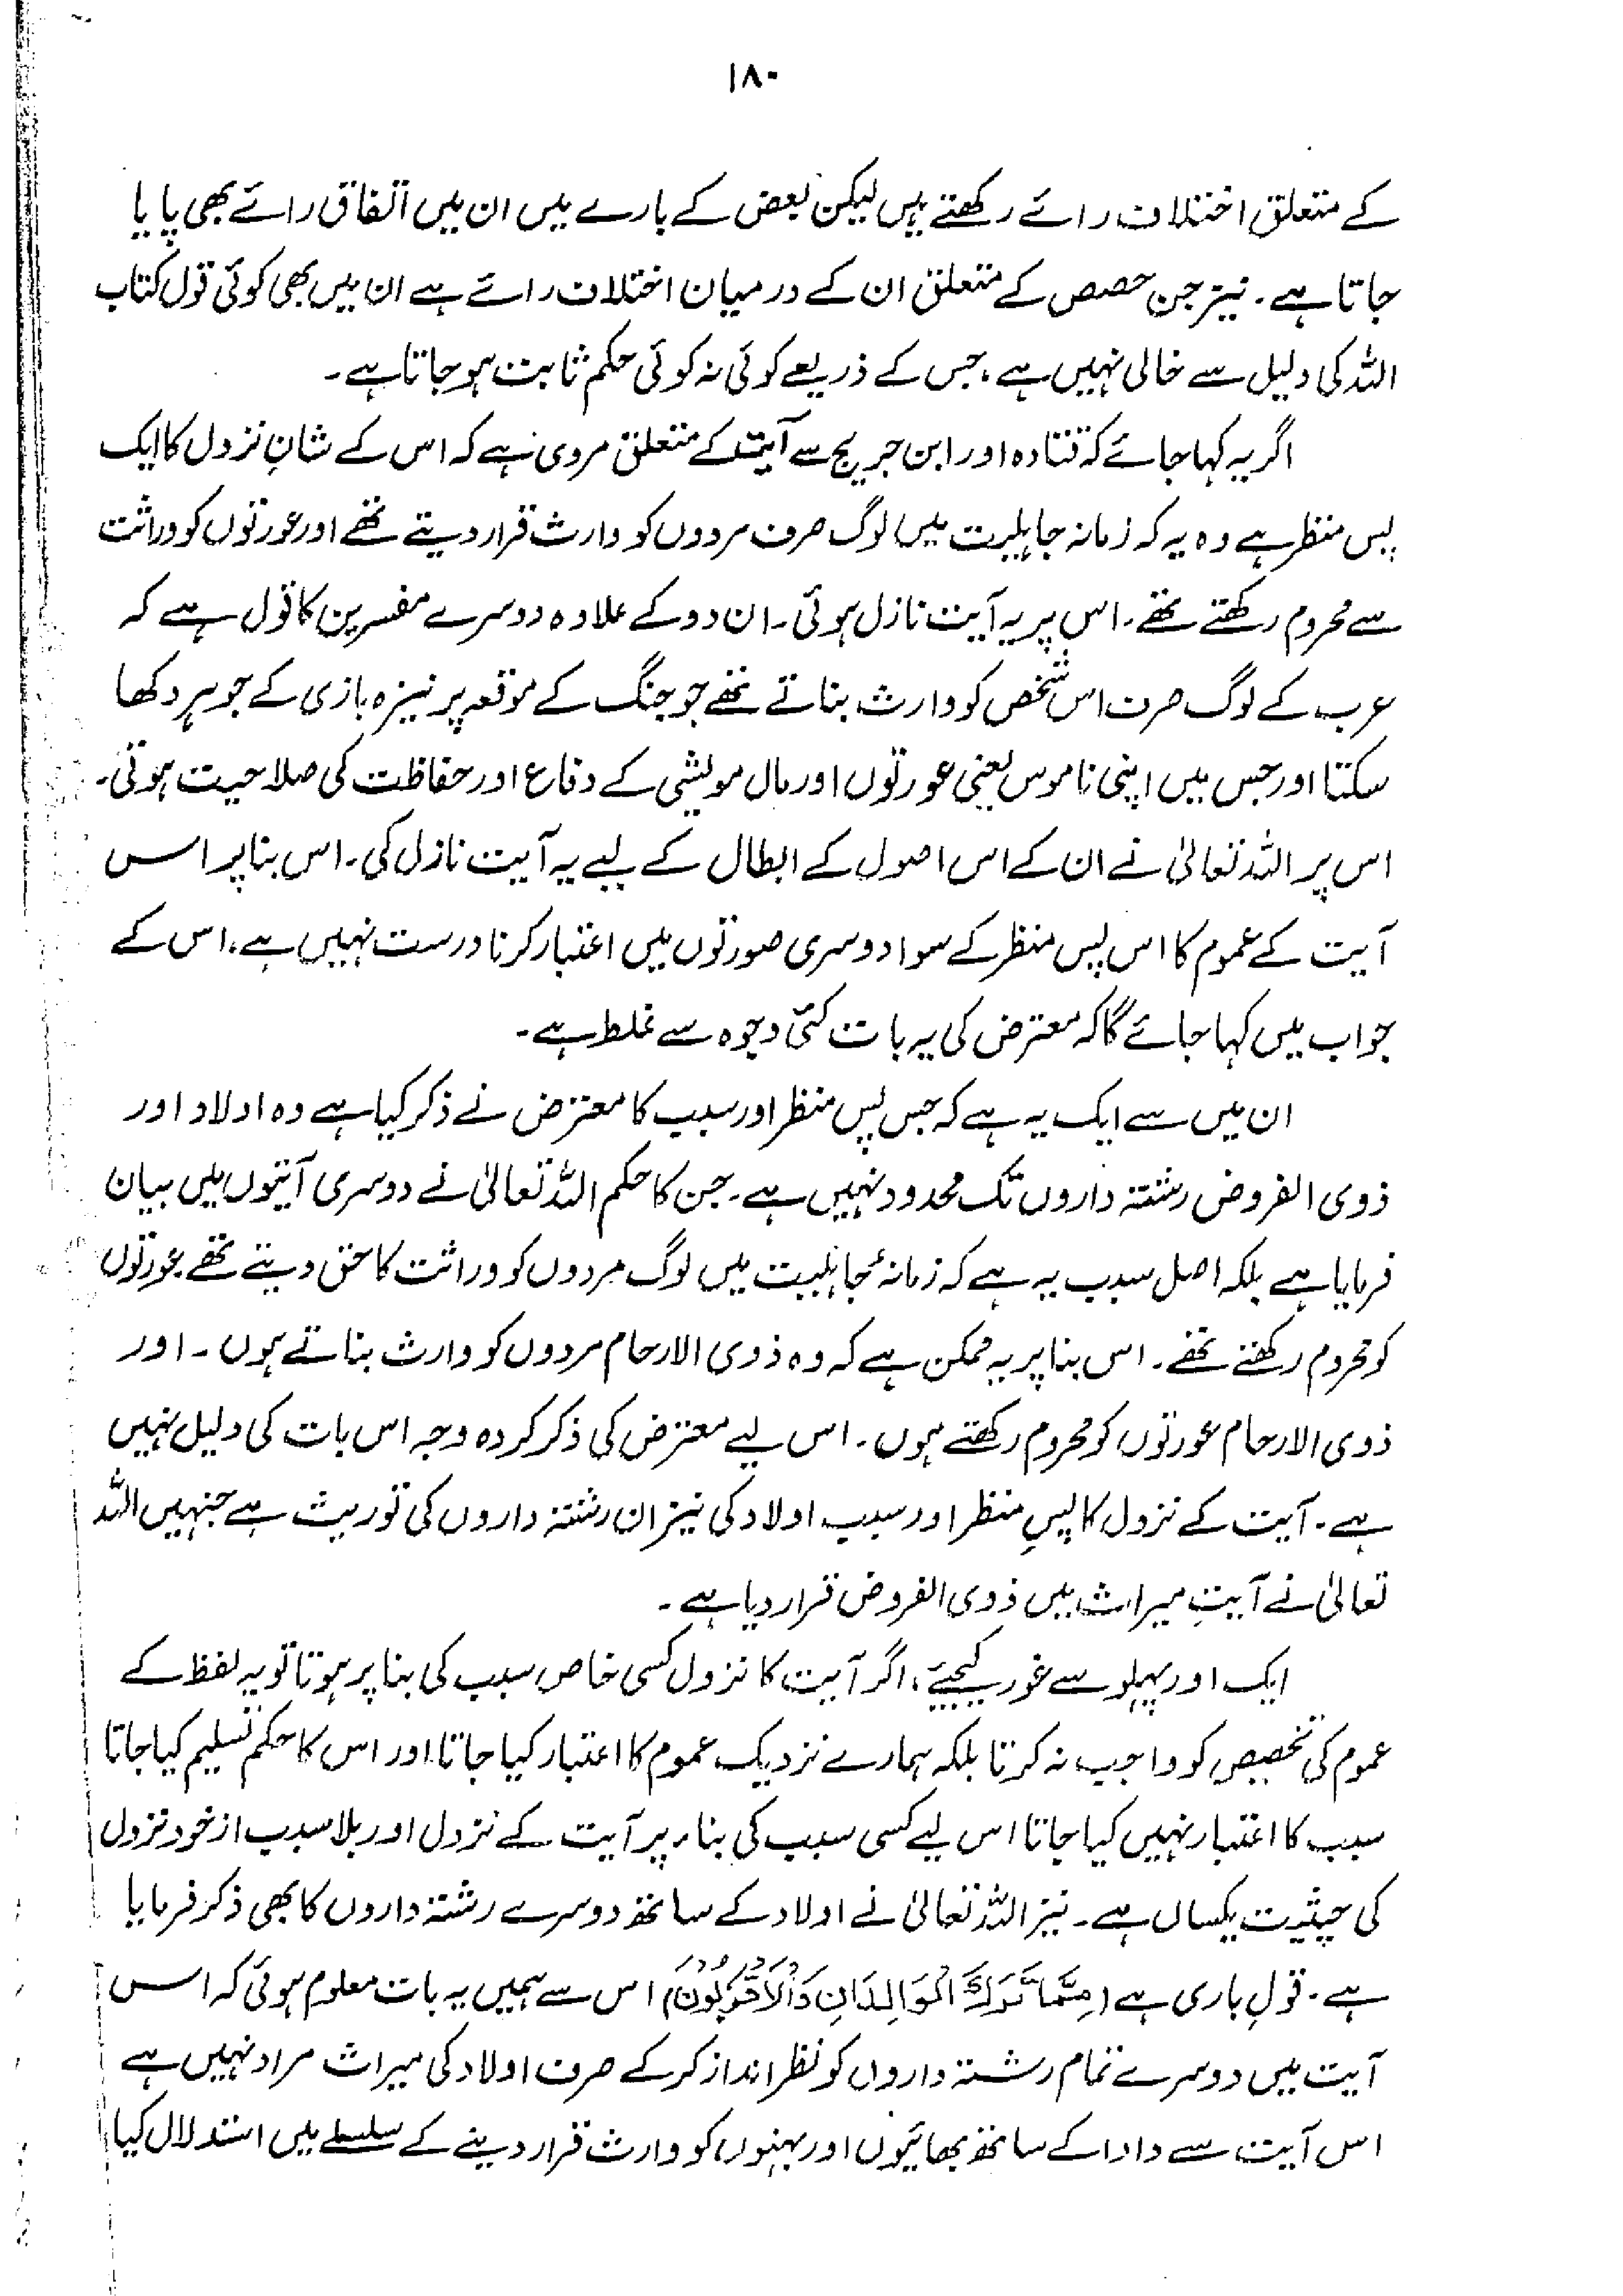 ۱۸۰
کے متعلق اختلاف رائے رکھتے ہیں لیکن بعض کے بارے میں ان میں اتفاق رائے بھی پایا
جاتا ہے۔ نیز جن حصص کے متعلق ان کے درمیان اختلاف رائے ہے ان میں بھی کوئی قول کتاب
اللہ کی دلیل سے خالی نہیں ہے، جس کے ذریعے کوئی نہ کوئی حکم ثابت ہو جاتا ہے۔
اگر یہ کہا جائے کہ قتادہ اور ابن جریج سے آیت کے متعلق مروی ہے کہ اس کے شانِ نزول کا ایک
پس منظر ہے وہ یہ کہ زمانہ جاہلیت میں لوگ صرف مردوں کو وارث قرار دیتے تھے اور عورتوں کو وراثت
سے محروم رکھتے تھے۔ اس پر یہ آیت نازل ہوئی۔ ان دو کے علاوہ دوسرے مفسرین کا قول ہے کہ
عرب کے لوگ صرف اس شخص کو وارث بناتے تھے جو جنگ کے موقعہ پر نیزہ بازی کے جوہر دکھا
سکتا اور جس میں اپنی ناموس یعنی عورتوں اور مال مویشی کے دفاع اور حفاظت کی صلاحیت ہوتی۔
اس پر اللہ تعالیٰ نے ان کے اس اصول کے ابطال کے لیے یہ آیت نازل کی۔ اس بنا پر اس
آیت کے عموم کا اس پس منظر کے سوا دوسری صورتوں میں اعتبار کرنا درست نہیں ہے، اس کے
جواب میں کہا جائے گا کہ معترض کی یہ بات کئی وجوہ سے غلط ہے۔
ان میں سے ایک یہ ہے کہ جس پس منظر اور سبب کا معترض نے ذکر کیا ہے وہ اولاد اور
ذوی الفروض رشتہ داروں تک محدود نہیں ہے۔ جن کا حکم اللہ تعالیٰ نے دوسری آیتوں میں بیان
فرمایا ہے بلکہ اصل سبب یہ ہے کہ زمانۂ جاہلیت میں لوگ مردوں کو وراثت کا حق دیتے تھے عورتوں
کو محروم رکھتے تھے۔ اس بنا پر یہ ممکن ہے کہ وہ ذوی الارحام مردوں کو وارث بناتے ہوں۔ اور
ذوی الارحام عورتوں کو محروم رکھتے ہوں۔ اس لیے معترض کی ذکر کردہ وجہ اس بات کی دلیل نہیں
ہے۔ آیت کے نزول کا پسِ منظر اور سبب اولاد کی نیز ان رشتہ داروں کی توریث ہے جنہیں اللہ
تعالیٰ نے آیتِ میراث میں ذوی الفروض قرار دیا ہے۔
ایک اور پہلو سے غور کیجیے، اگر آیت کا نزول کسی خاص سبب کی بنا پر ہوتا تو یہ لفظ کے
عموم کی تخصیص کو واجب نہ کرتا بلکہ ہمارے نزدیک عموم کا اعتبار کیا جاتا اور اس کا حکم تسلیم کیا جاتا
سبب کا اعتبار نہیں کیا جاتا اس لیے کسی سبب کی بناء پر آیت کے نزول اور بلا سبب از خود نزول
کی حیثیت یکساں ہے۔ نیز اللہ تعالیٰ نے اولاد کے ساتھ دوسرے رشتہ داروں کا بھی ذکر فرمایا
ہے۔ قولِ باری ہے (مِمَّا تَرَكَ الْوَالِدَانِ وَالْاَقْرَبُوْنَ) اس سے ہمیں یہ بات معلوم ہوئی کہ اس
آیت میں دوسرے تمام رشتہ داروں کو نظر انداز کر کے صرف اولاد کی میراث مراد نہیں ہے
اس آیت سے دادا کے ساتھ بھائیوں اور بہنوں کو وارث قرار دینے کے سلسلے میں استدلال کیا